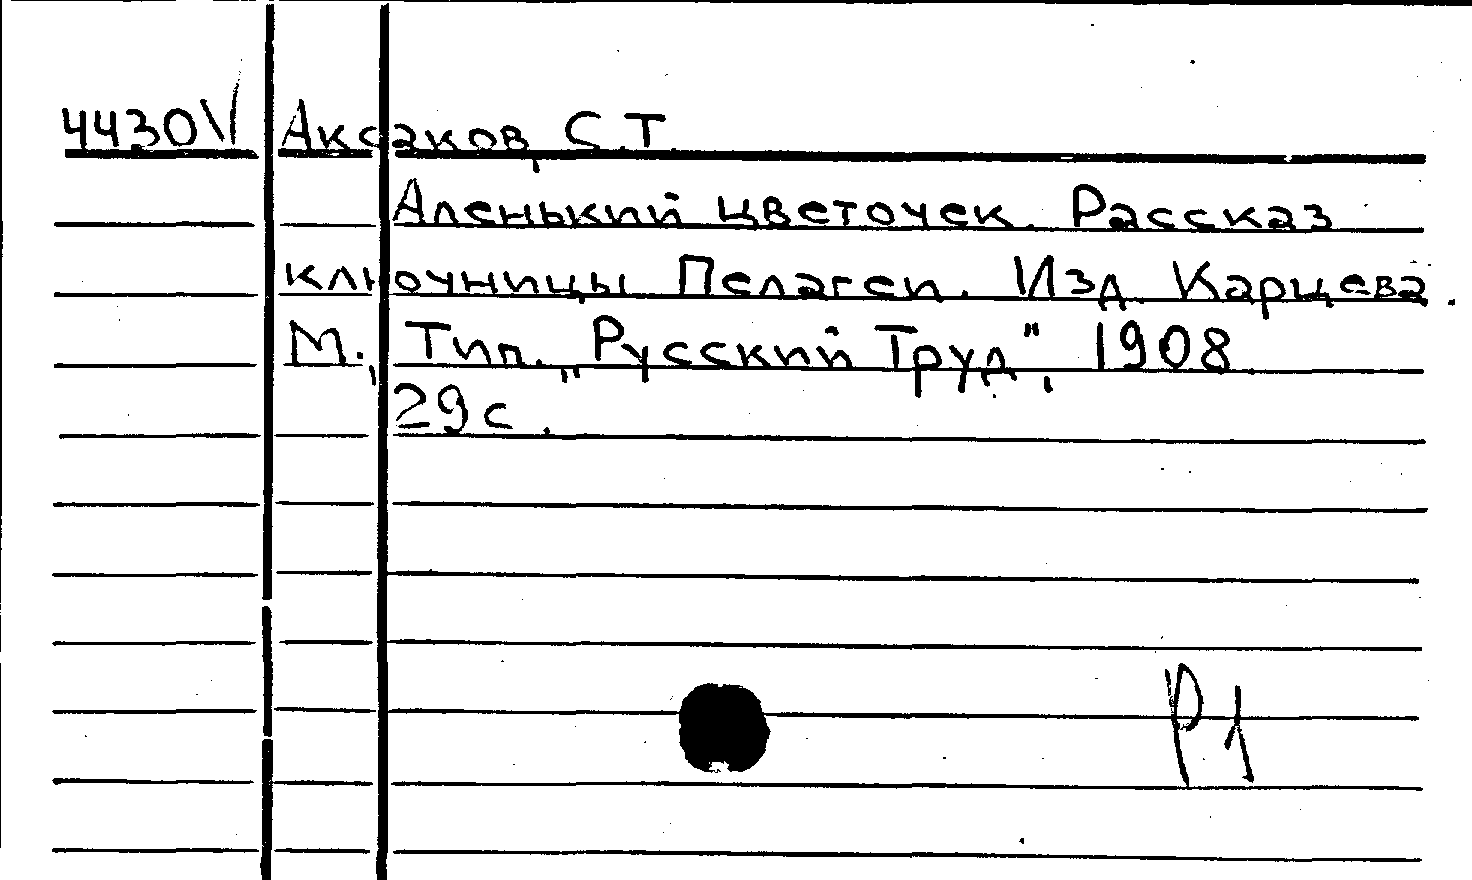 4430V Аксаков, С.Т.
Аленький цветочек. Рассказ
ключницы Пелагеи. Изд. Карцева.
М., Тип. „Русский Труд", 1908
29 с.
Р1